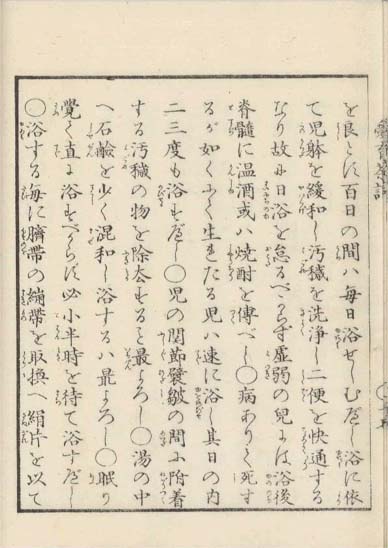 を良とす百日の間ハ毎日浴せしむべし浴に依
て児躰を緩和し汚穢を洗浄し二便を快通する
なり故に日浴を怠るべからず虚弱の児には浴後
脊髄に温酒或ハ焼酎を傳べし〇病ありて死す
るが如くふく生きたる児ハ速に浴し其日の内
二三度も浴すべし〇児の関節襞皺の間に附着
する汚穢の物を除去するを最よろし〇湯の中
へ石鹼を少く混和し浴するハ最よろし〇眠り
覚て直に浴すべからず必小半時を待て浴すべし
〇浴する毎に臍帯の繃帯を取換へ絹片を以て